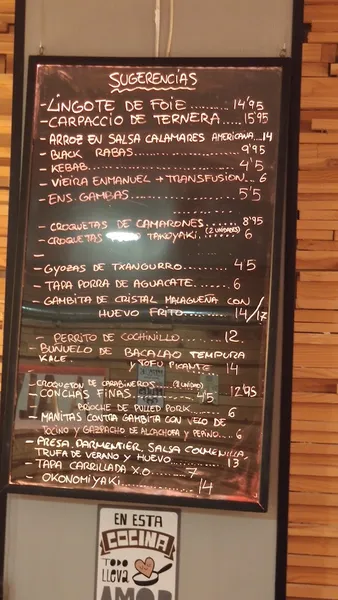 SUGERENCIAS
- LINGOTE DE FOIE......... 14'95
- CARPACCIO DE TERNERA..... 15'95
- ARROZ EN SALSA CALAMARES AMERICANA...14
- BLACK RABAS................. 9'95
- KEBAB........................ 4'5
- VIEIRA ENMANUEL + TRANSFUSION.. 6
- ENS. GAMBAS................ 5'5
- CROQUETAS DE CAMARONES...... 8'95
- CROQUETAS TAKOYAKI. (2 UNIDADES) 6
-
- GYOZAS DE TXANGURRO......... 4'5
- TAPA PORRA DE AGUACATE..... 6
- GAMBITA DE CRISTAL MALAGUEÑA CON
HUEVO FRITO........ 14/17
- PERRITO DE COCHINILLO...... 12
- BUÑUELO DE BACALAO TEMPURA
KALE Y TOFU PICANTE 14
- CROQUETON DE CARABINEROS... (1 UNIDAD)
- CONCHAS FINAS........... 4'5 12'95
BRIOCHE DE PULLED PORK...... 6
- MANITAS CONTRA GAMBITA CON VELO DE
TOCINO Y GAZPACHO DE ALCACHOFA Y PEPINO...6
- PRESA, PARMENTIER, SALSA COLMENILLA,
TRUFA DE VERANO Y HUEVO......... 13
- TAPA CARRILLADA X.O........ 7
- OKONOMIYAKI............ 14
EN ESTA
COCINA
TODO
LLEVA
AMOR